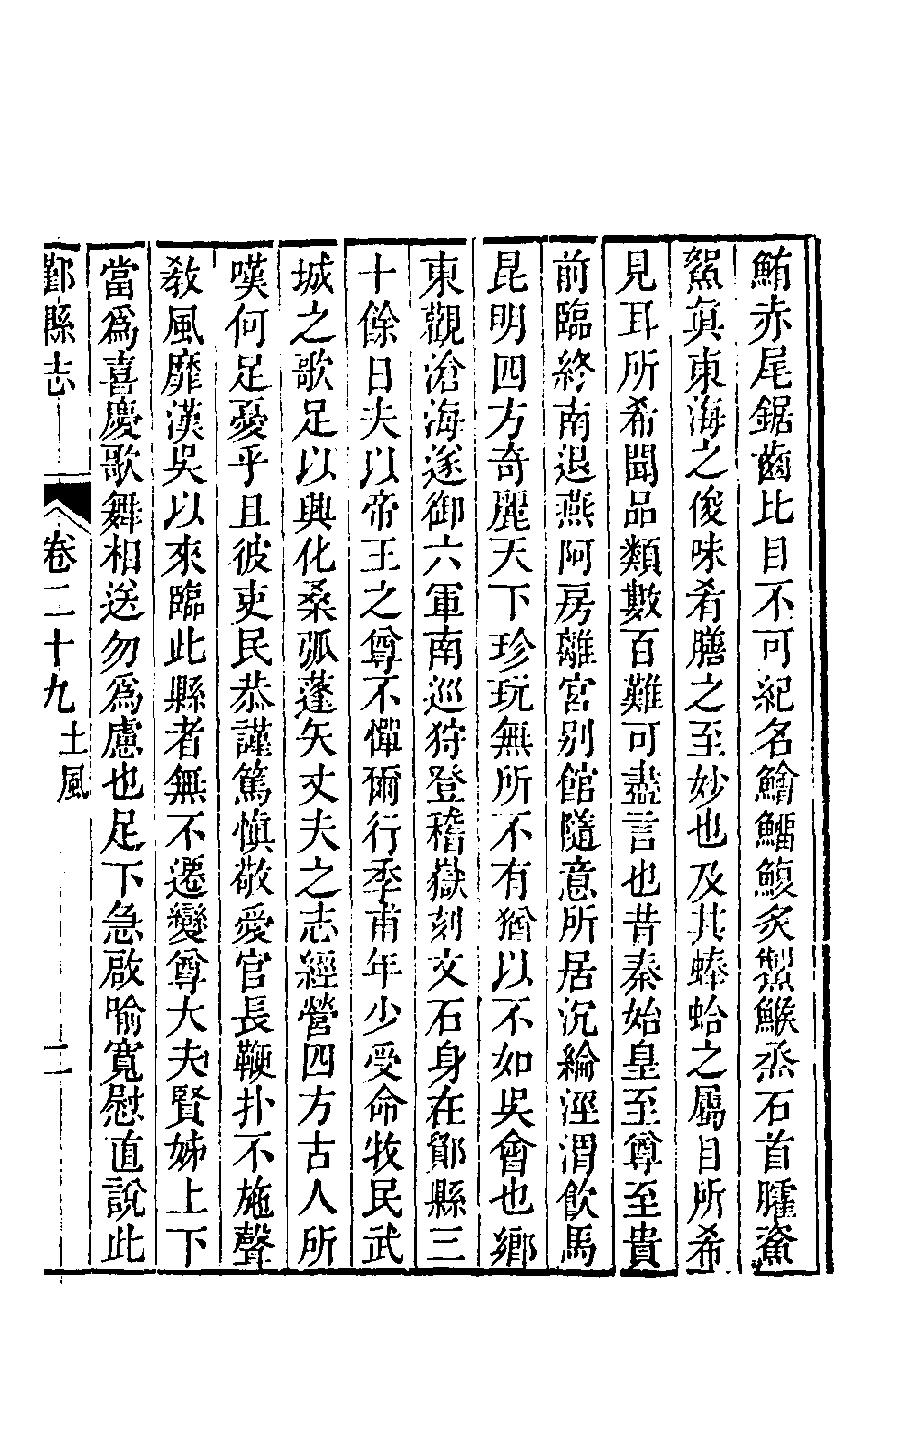 鮪赤尾鋸齒比目不可紀名鱠鰡鰒炙䱥鯸烝石首臛䰼
鴽眞東海之俊味肴膳之至妙也及其蜯蛤之屬目所希
見耳所希聞品類數百難可盡言也昔秦始皇至尊至貴
前臨終南退燕阿房離宮别館隨意所居沉綸涇渭飮馬
昆明四方奇麗天下珍玩無所不有猶以不如吳會也鄉
東觀滄海遂御六軍南巡狩登稽嶽刻文石身在鄮縣三
十餘日夫以帝王之尊不憚爾行季甫年少受命牧民武
城之歌足以興化桑弧蓬矢丈夫之志經營四方古人所
嘆何足憂乎且彼吏民恭謹篤愼敬愛官長鞭扑不施聲
敎風靡漢吳以來臨此縣者無不遷變尊大夫賢姊上下
當爲喜慶歌舞相送勿爲慮也足下急啟喻寬慰直說此
鄞縣志
卷二十九
土風
二